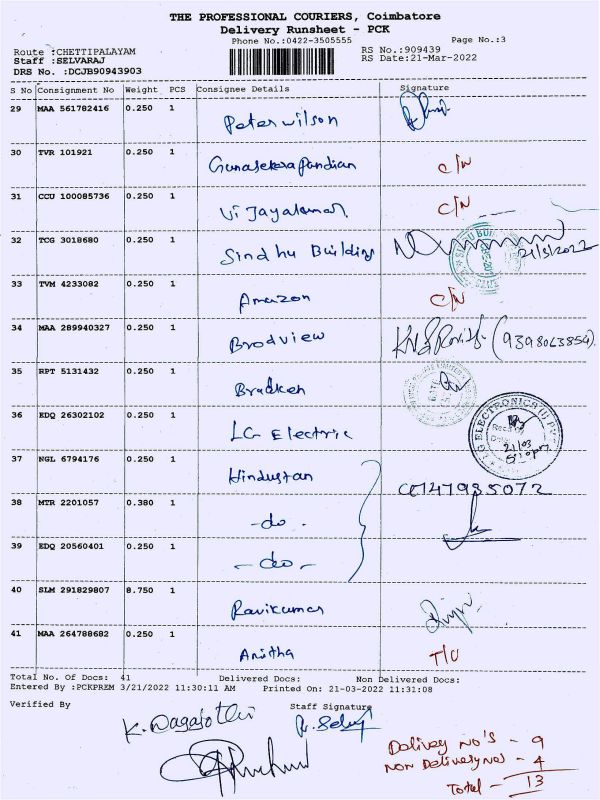 THE PROFESSIONAL COURIERS, Coimbatore
Delivery Runsheet - PCK
Phone No.:0422-3505555 Page No.:3
Route :CHETTIPALAYAM RS No.:909439
Staff :SELVARAJ RS Date:21-Mar-2022
DRS No. :DCJB90943903
S No Consignment No Weight PCS Consignee Details Signature
29 MAA 561782416 0.250 1 Peter wilson
30 TVR 101921 0.250 1 Gunasekera Pandian C/N
31 CCU 100085736 0.250 1 Vijayakumar C/N
32 TCG 3018680 0.250 1 Sindhu Building 21/3/2022
33 TVM 4233082 0.250 1 Amazon C/N
34 MAA 289940327 0.250 1 Brodview (9398063854)
35 RPT 5131432 0.250 1 Bradken
36 EDQ 26302102 0.250 1 LG Electric
LG ELECTRONICS
21/03
37 NGL 6794176 0.250 1 Hindustan
38 MTR 2201057 0.380 1 -do-
39 EDQ 20560401 0.250 1 -do-
40 SLM 291829807 8.750 1 Ravikumar
41 MAA 264788682 0.250 1 Anitha T/U
Total No. Of Docs: 41 Delivered Docs: Non Delivered Docs:
Entered By :PCKPREM 3/21/2022 11:30:11 AM Printed On: 21-03-2022 11:31:08
Verified By Staff Signature
Delivey No's - 9
Non Delivery Nos - 4
Total - 13